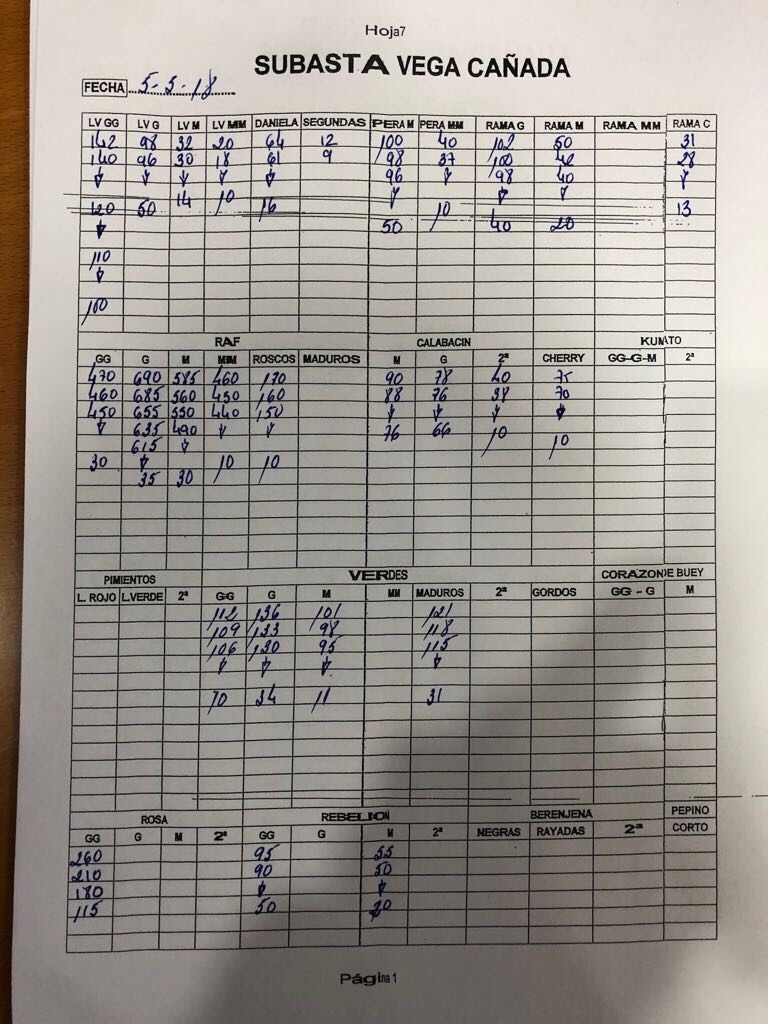 Hoja7
SUBASTA VEGA CAÑADA
FECHA 5-5-18
LV GG LV G LV M LV MM DANIELA SEGUNDAS PERA M PERA MM RAMA G RAMA M RAMA MM RAMA C
142 98 32 20 64 12 100 40 102 50 31
140 96 30 18 61 9 98 37 100 42 28
96 98 40
120 50 14 10 16 10 13
50 40 20
110
100
RAF CALABACIN KUMATO
GG G M MM ROSCOS MADUROS M G 2ª CHERRY GG-G-M 2ª
470 690 585 460 170 90 78 40 75
460 685 560 450 160 88 76 38 70
450 655 550 440 150
635 490 76 66 10 10
615
30 10 10
35 30
PIMIENTOS VERDES CORAZON DE BUEY
L. ROJO L.VERDE 2ª GG G M MM MADUROS 2ª GORDOS GG - G M
112 136 101 121
109 133 98 118
106 130 95 115
70 34 11 31
ROSA REBELION BERENJENA PEPINO
GG G M 2ª GG G M 2ª NEGRAS RAYADAS 2ª CORTO
260 95 55
210 90 50
180
115 50 20
Página 1